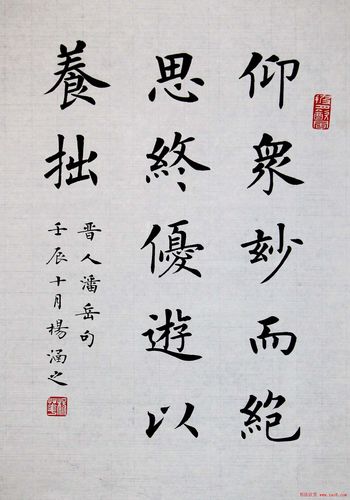 仰眾妙而絕
思終優遊以
養拙
晉人潘岳句
壬辰十月楊涵之